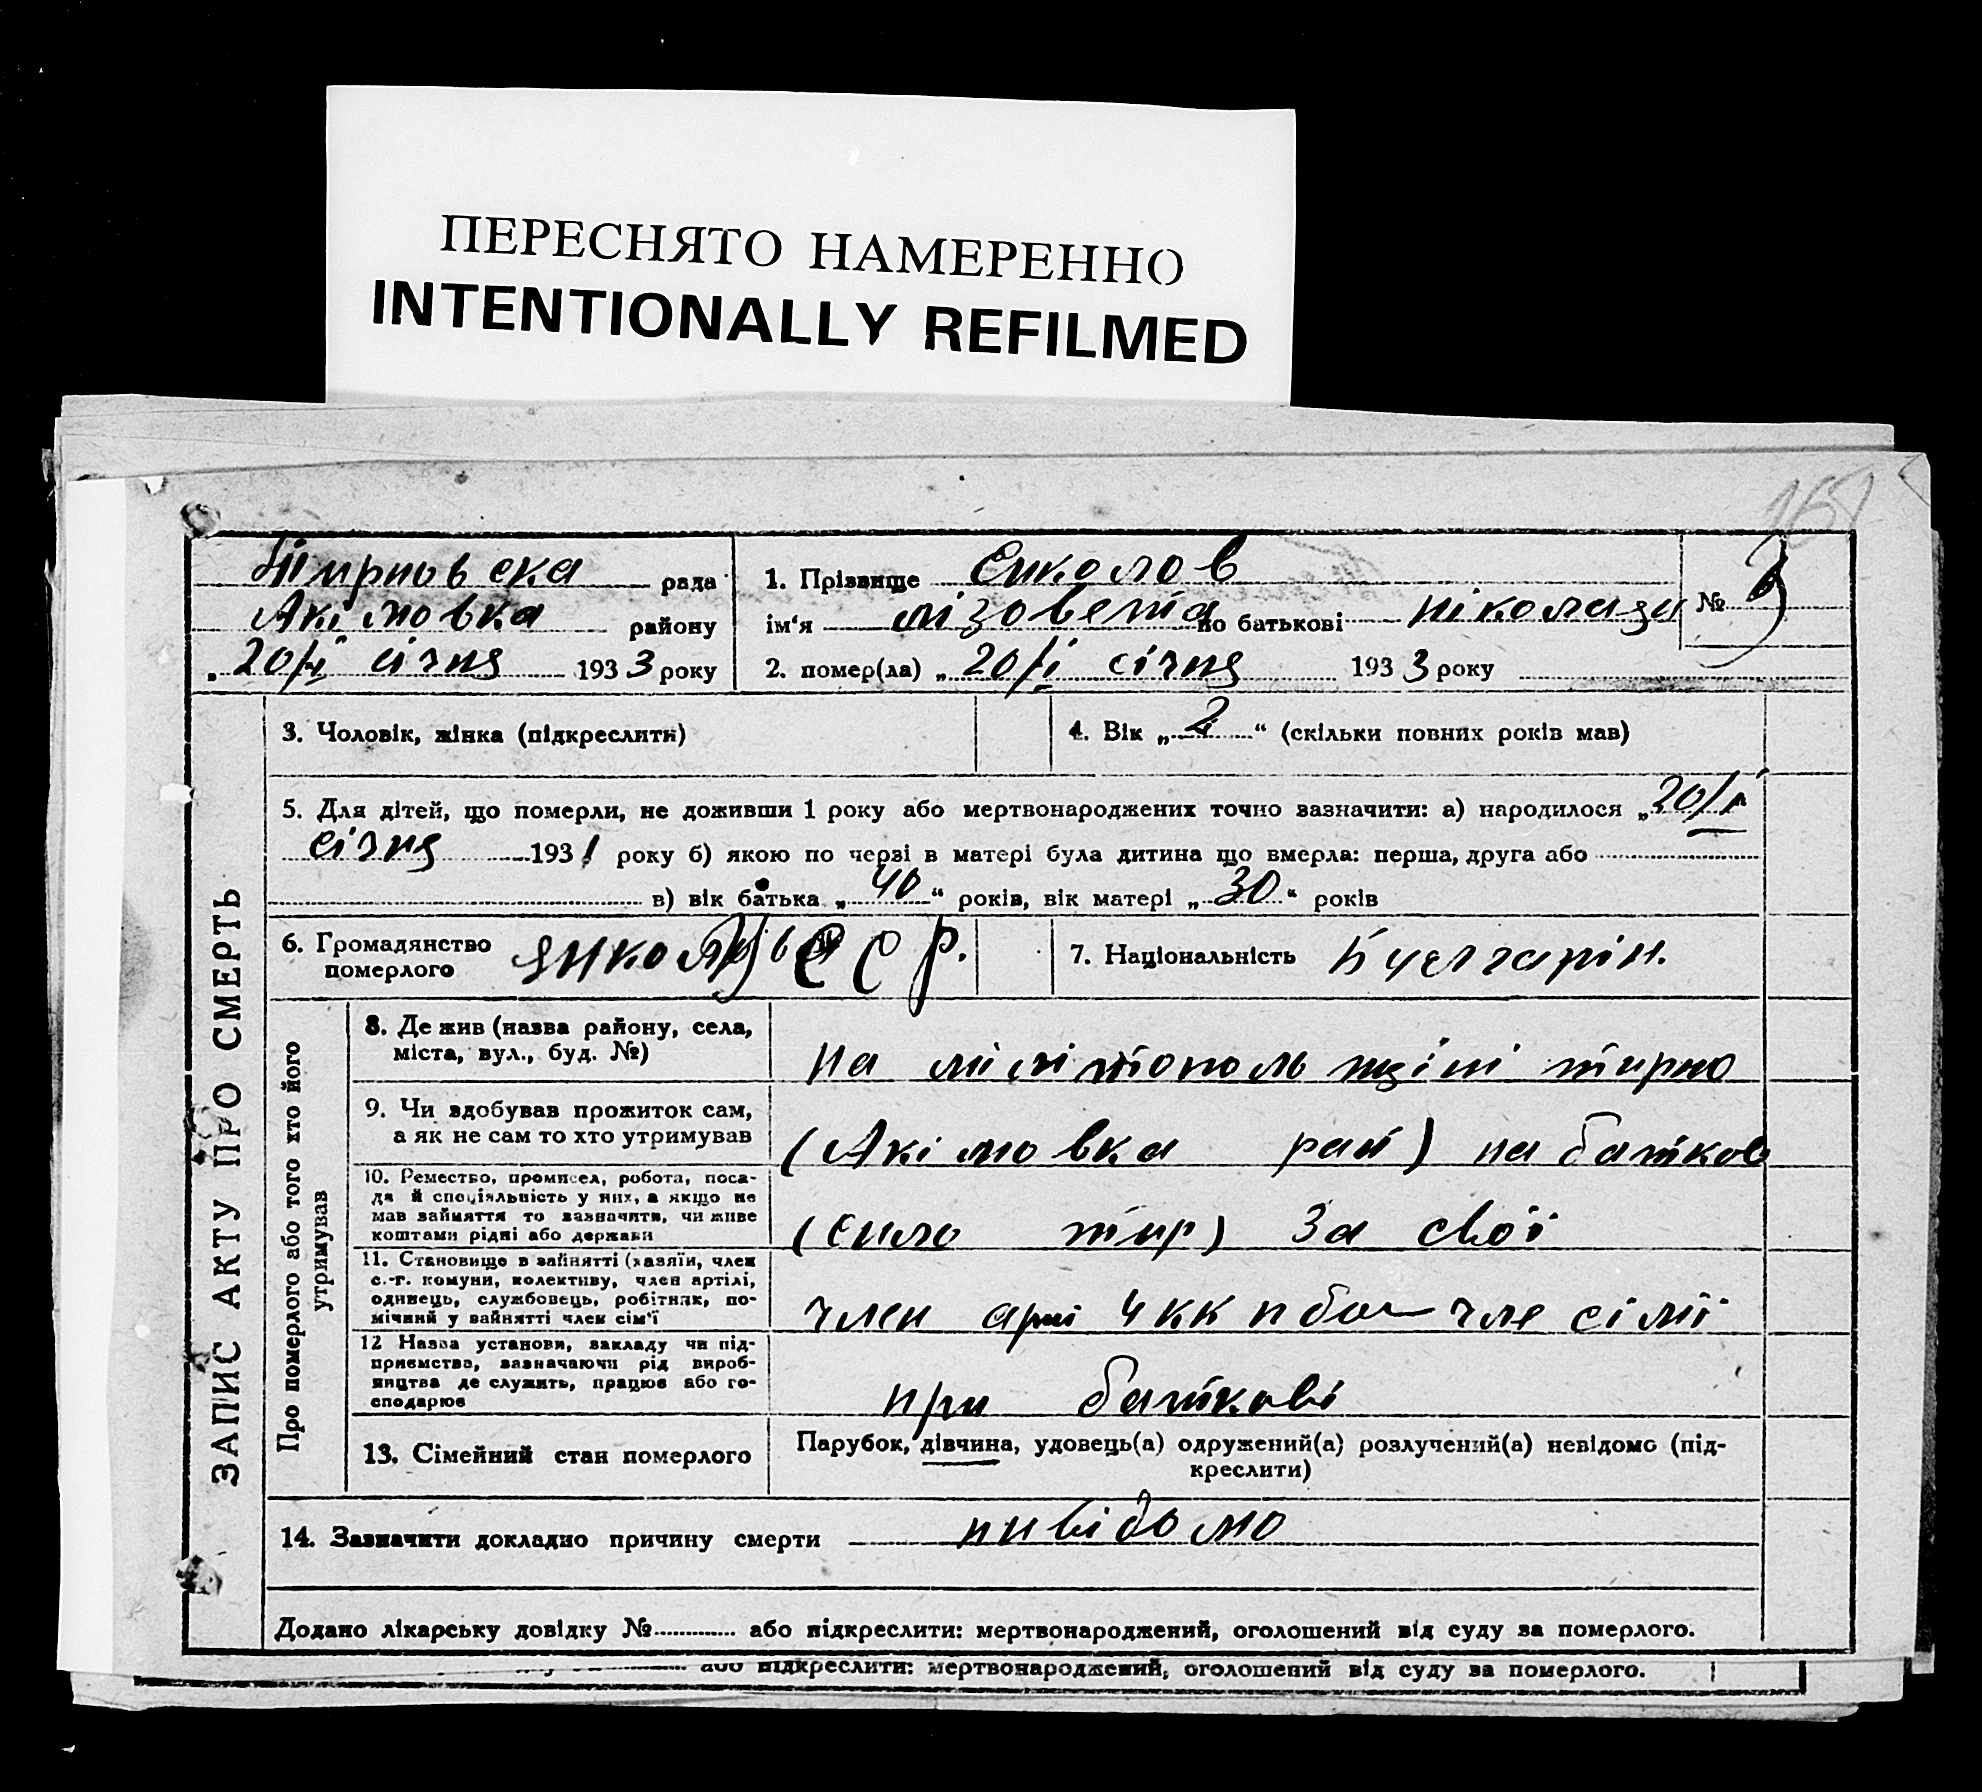 ПЕРЕСНЯТО НАМЕРЕННО
INTENTIONALLY REFILMED
рада
Акімовка району
„20/І січня 1933 року
1. Прізвище
ім'я лізовета по батькові ніколази
№
2. помер(ла) „20/І січня 1933 року
ЗАПИС АКТУ ПРО СМЕРТЬ
3. Чоловік, жінка (підкреслити)
4. Вік „2“ (скільки повних років мав)
5. Для дітей, що померли, не доживши 1 року або мертвонароджених точно зазначити: а) народилося „20/І
січня 1931 року б) якою по черзі в матері була дитина що вмерла: перша, друга або
в) вік батька „40“ років, вік матері „30“ років
6. Громадянство
померлого
7. Національність
Про померлого або того хто його
утримував
8. Де жив (назва району, села,
міста, вул., буд. №)
на тирно
9. Чи здобував прожиток сам,
а як не сам то хто утримував
(Акімовка рай) на батков
10. Ремество, промисел, робота, поса-
да й спеціяльність у них, а якщо не
мав зайняття то зазначити, чи живе
коштами рідні або держави
тир) за свої
11. Становище в зайнятті (хазяїн, член
с.-г. комуни, колективу, член артілі,
одинець, службовець, робітник, по-
мічний у зайнятті член сім'ї
член чле сімії
12 Назва установи, закладу чи під-
приємства, зазначаючи рід вироб-
ництва де служить, працює або го-
сподарює
при баткові
13. Сімейний стан померлого
Парубок, дівчина, удовець(а) одружений(а) розлучений(а) невідомо (під-
креслити)
14. Зазначити докладно причину смерти нивідомо
Додано лікарську довідку № або підкреслити: мертвонароджений, оголошений від суду за померлого.
або підкреслити: мертвонароджений, оголошений від суду за померлого.